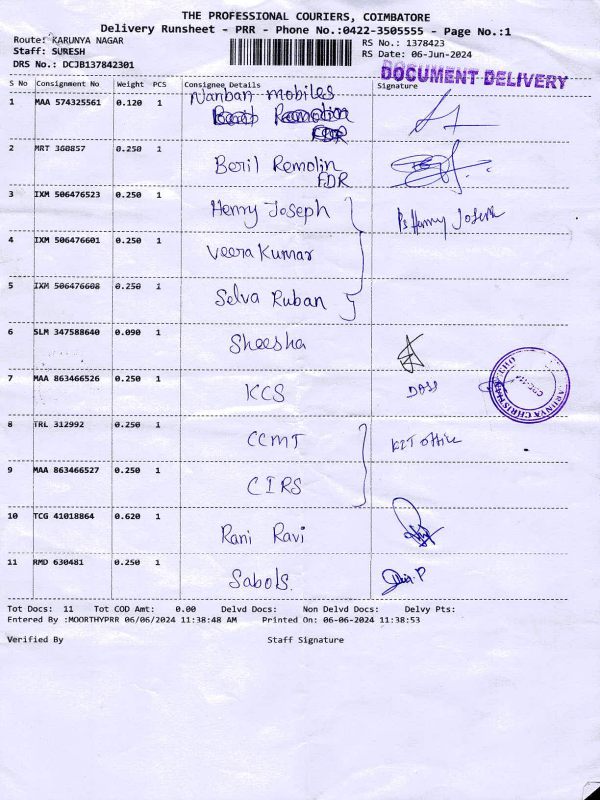 THE PROFESSIONAL COURIERS, COIMBATORE
Delivery Runsheet - PRR - Phone No.:0422-3505555 - Page No.:1
Route: KARUNYA NAGAR RS No.: 1378423
Staff: SURESH RS Date: 06-Jun-2024
DRS No.: DCJB137842301 DOCUMENT DELIVERY
S No Consignment No Weight PCS Consignee Details Signature
1 MAA 574325561 0.120 1 Nanban mobiles
2 MRT 360857 0.250 1 Beril Remolin
FDR
3 IXM 506476523 0.250 1 Henry Joseph Henry Joseph
4 IXM 506476601 0.250 1 Veera Kumar
5 IXM 506476608 0.250 1 Selva Ruban
6 SLM 347588640 0.090 1 Sheesha
7 MAA 863466526 0.250 1 KCS DASS
8 TRL 312992 0.250 1 CCMT KIT office
9 MAA 863466527 0.250 1 CIRS
10 TCG 41018864 0.620 1 Rani Ravi
11 RMD 630481 0.250 1 Sabols.
Tot Docs: 11 Tot COD Amt: 0.00 Delvd Docs: Non Delvd Docs: Delvy Pts:
Entered By :MOORTHYPRR 06/06/2024 11:38:48 AM Printed On: 06-06-2024 11:38:53
Verified By Staff Signature